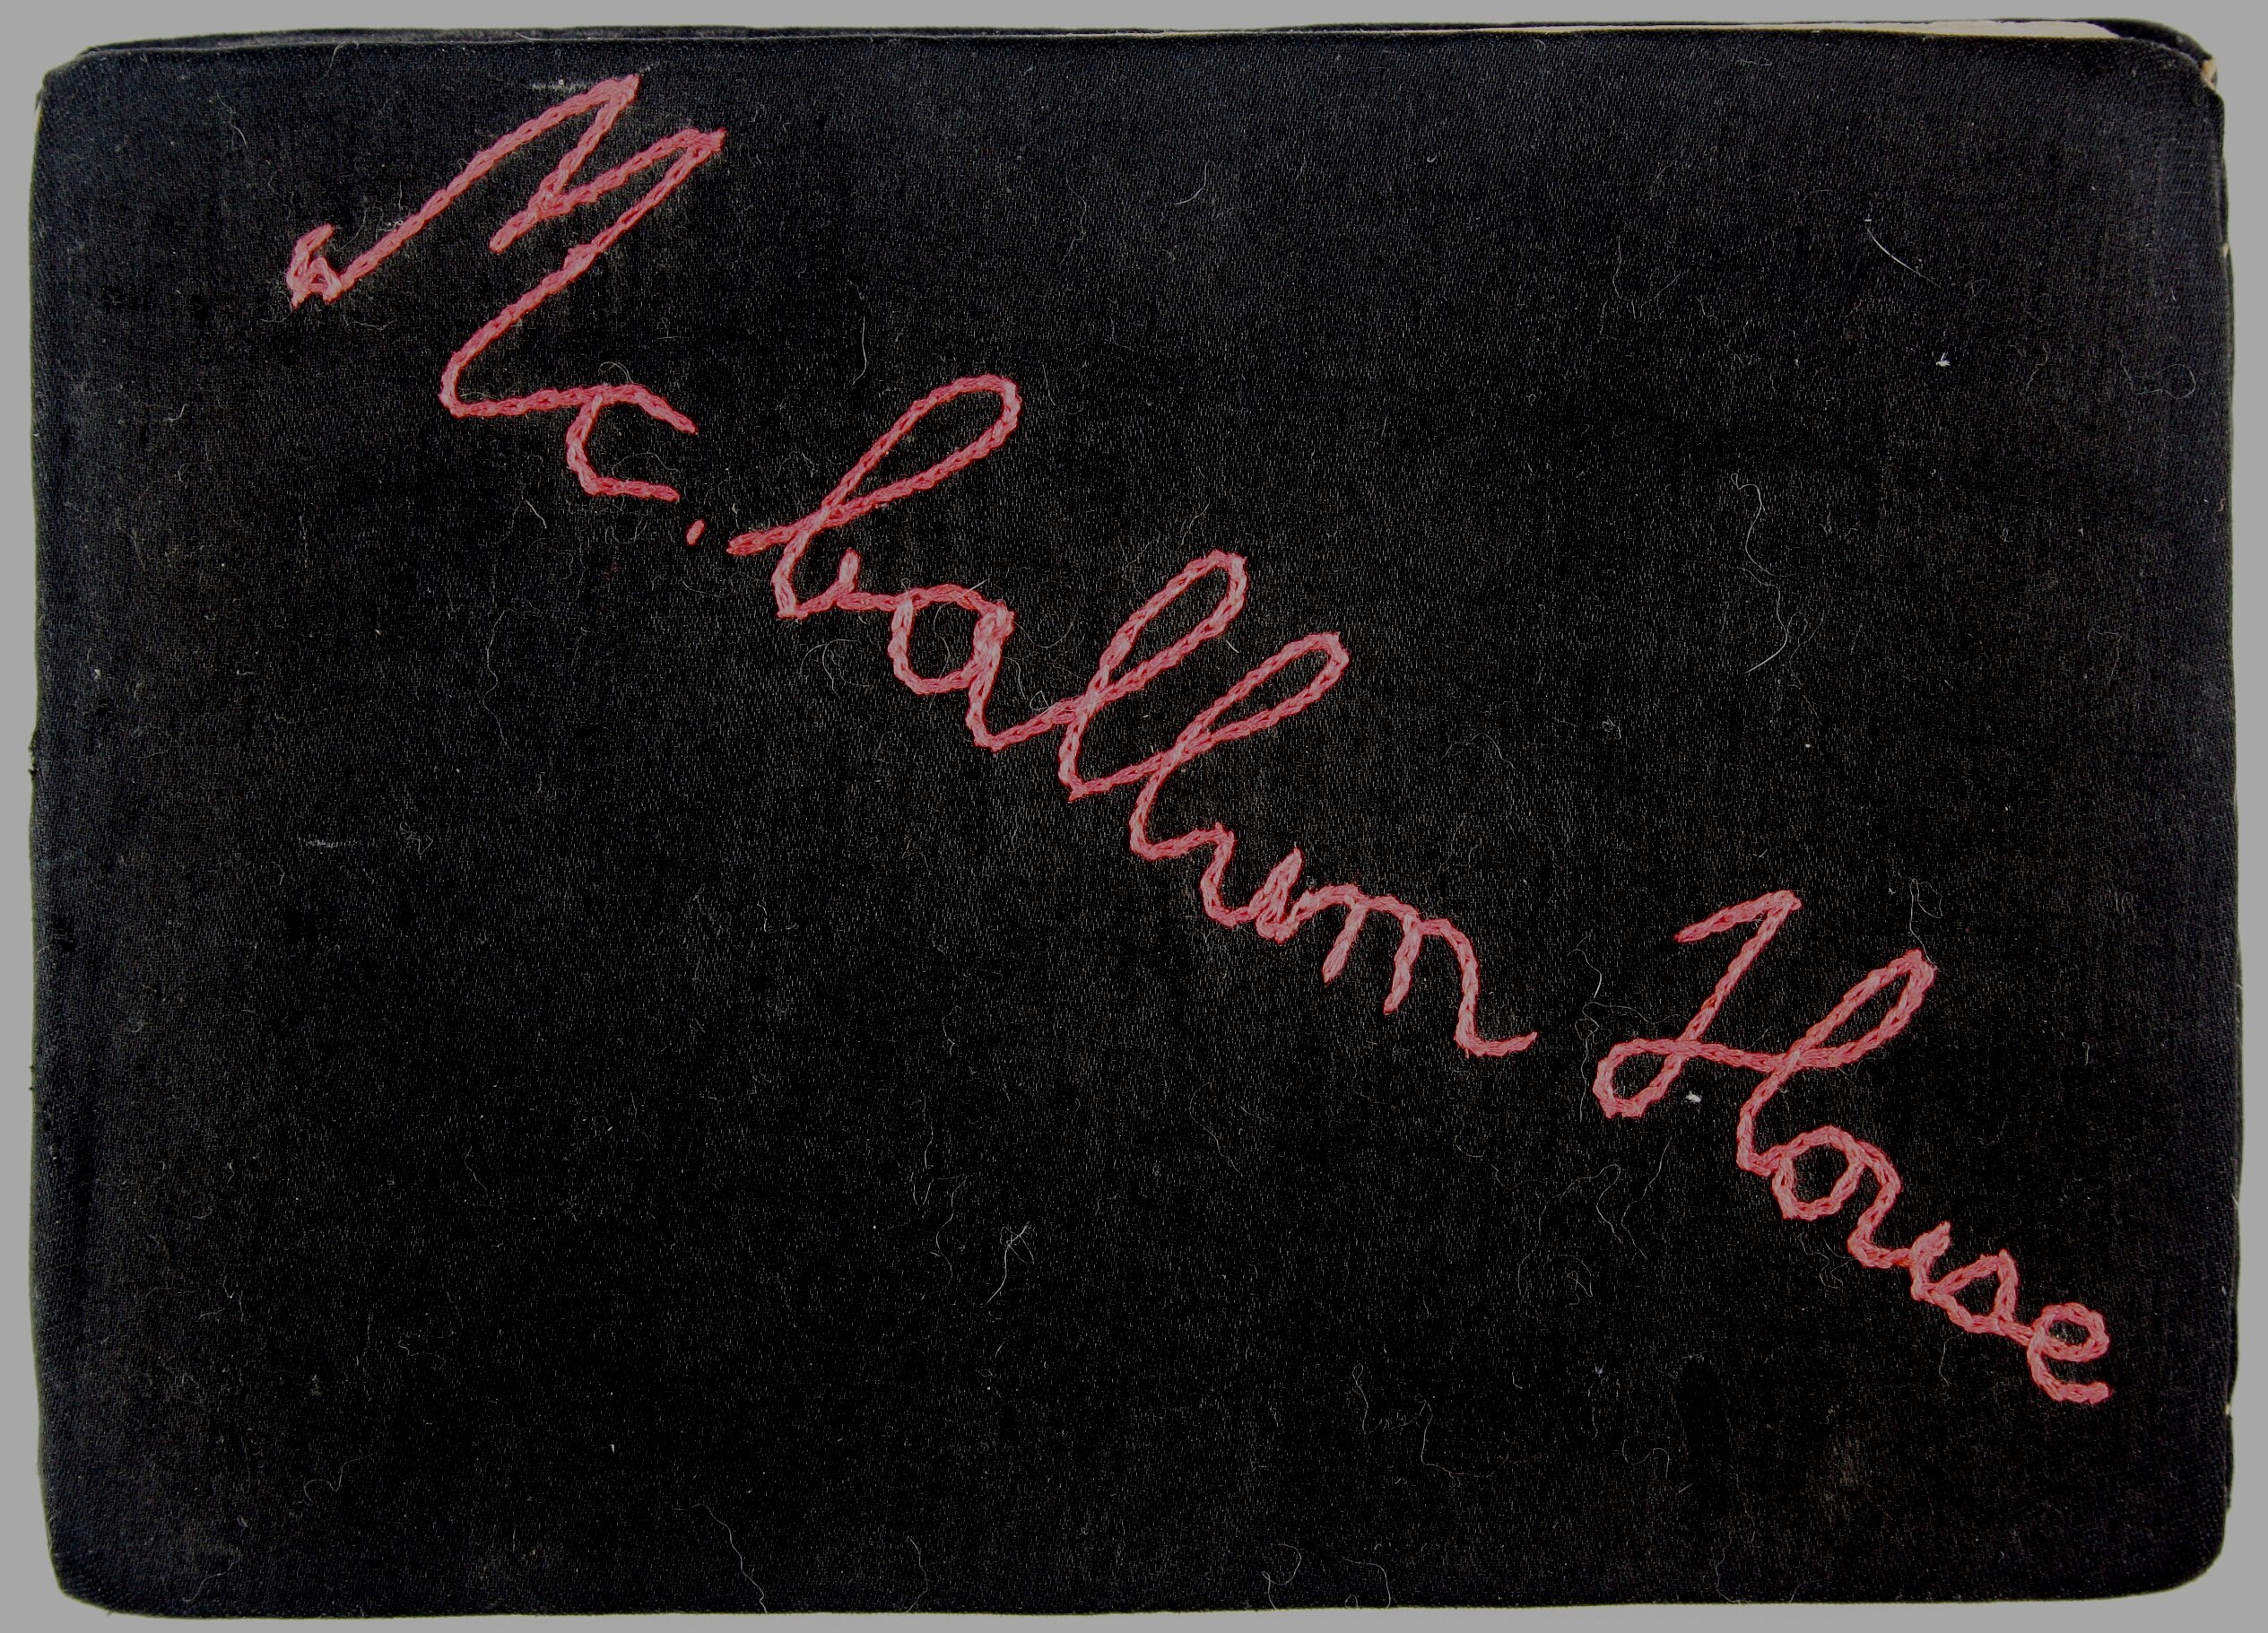 Mc. Callum House